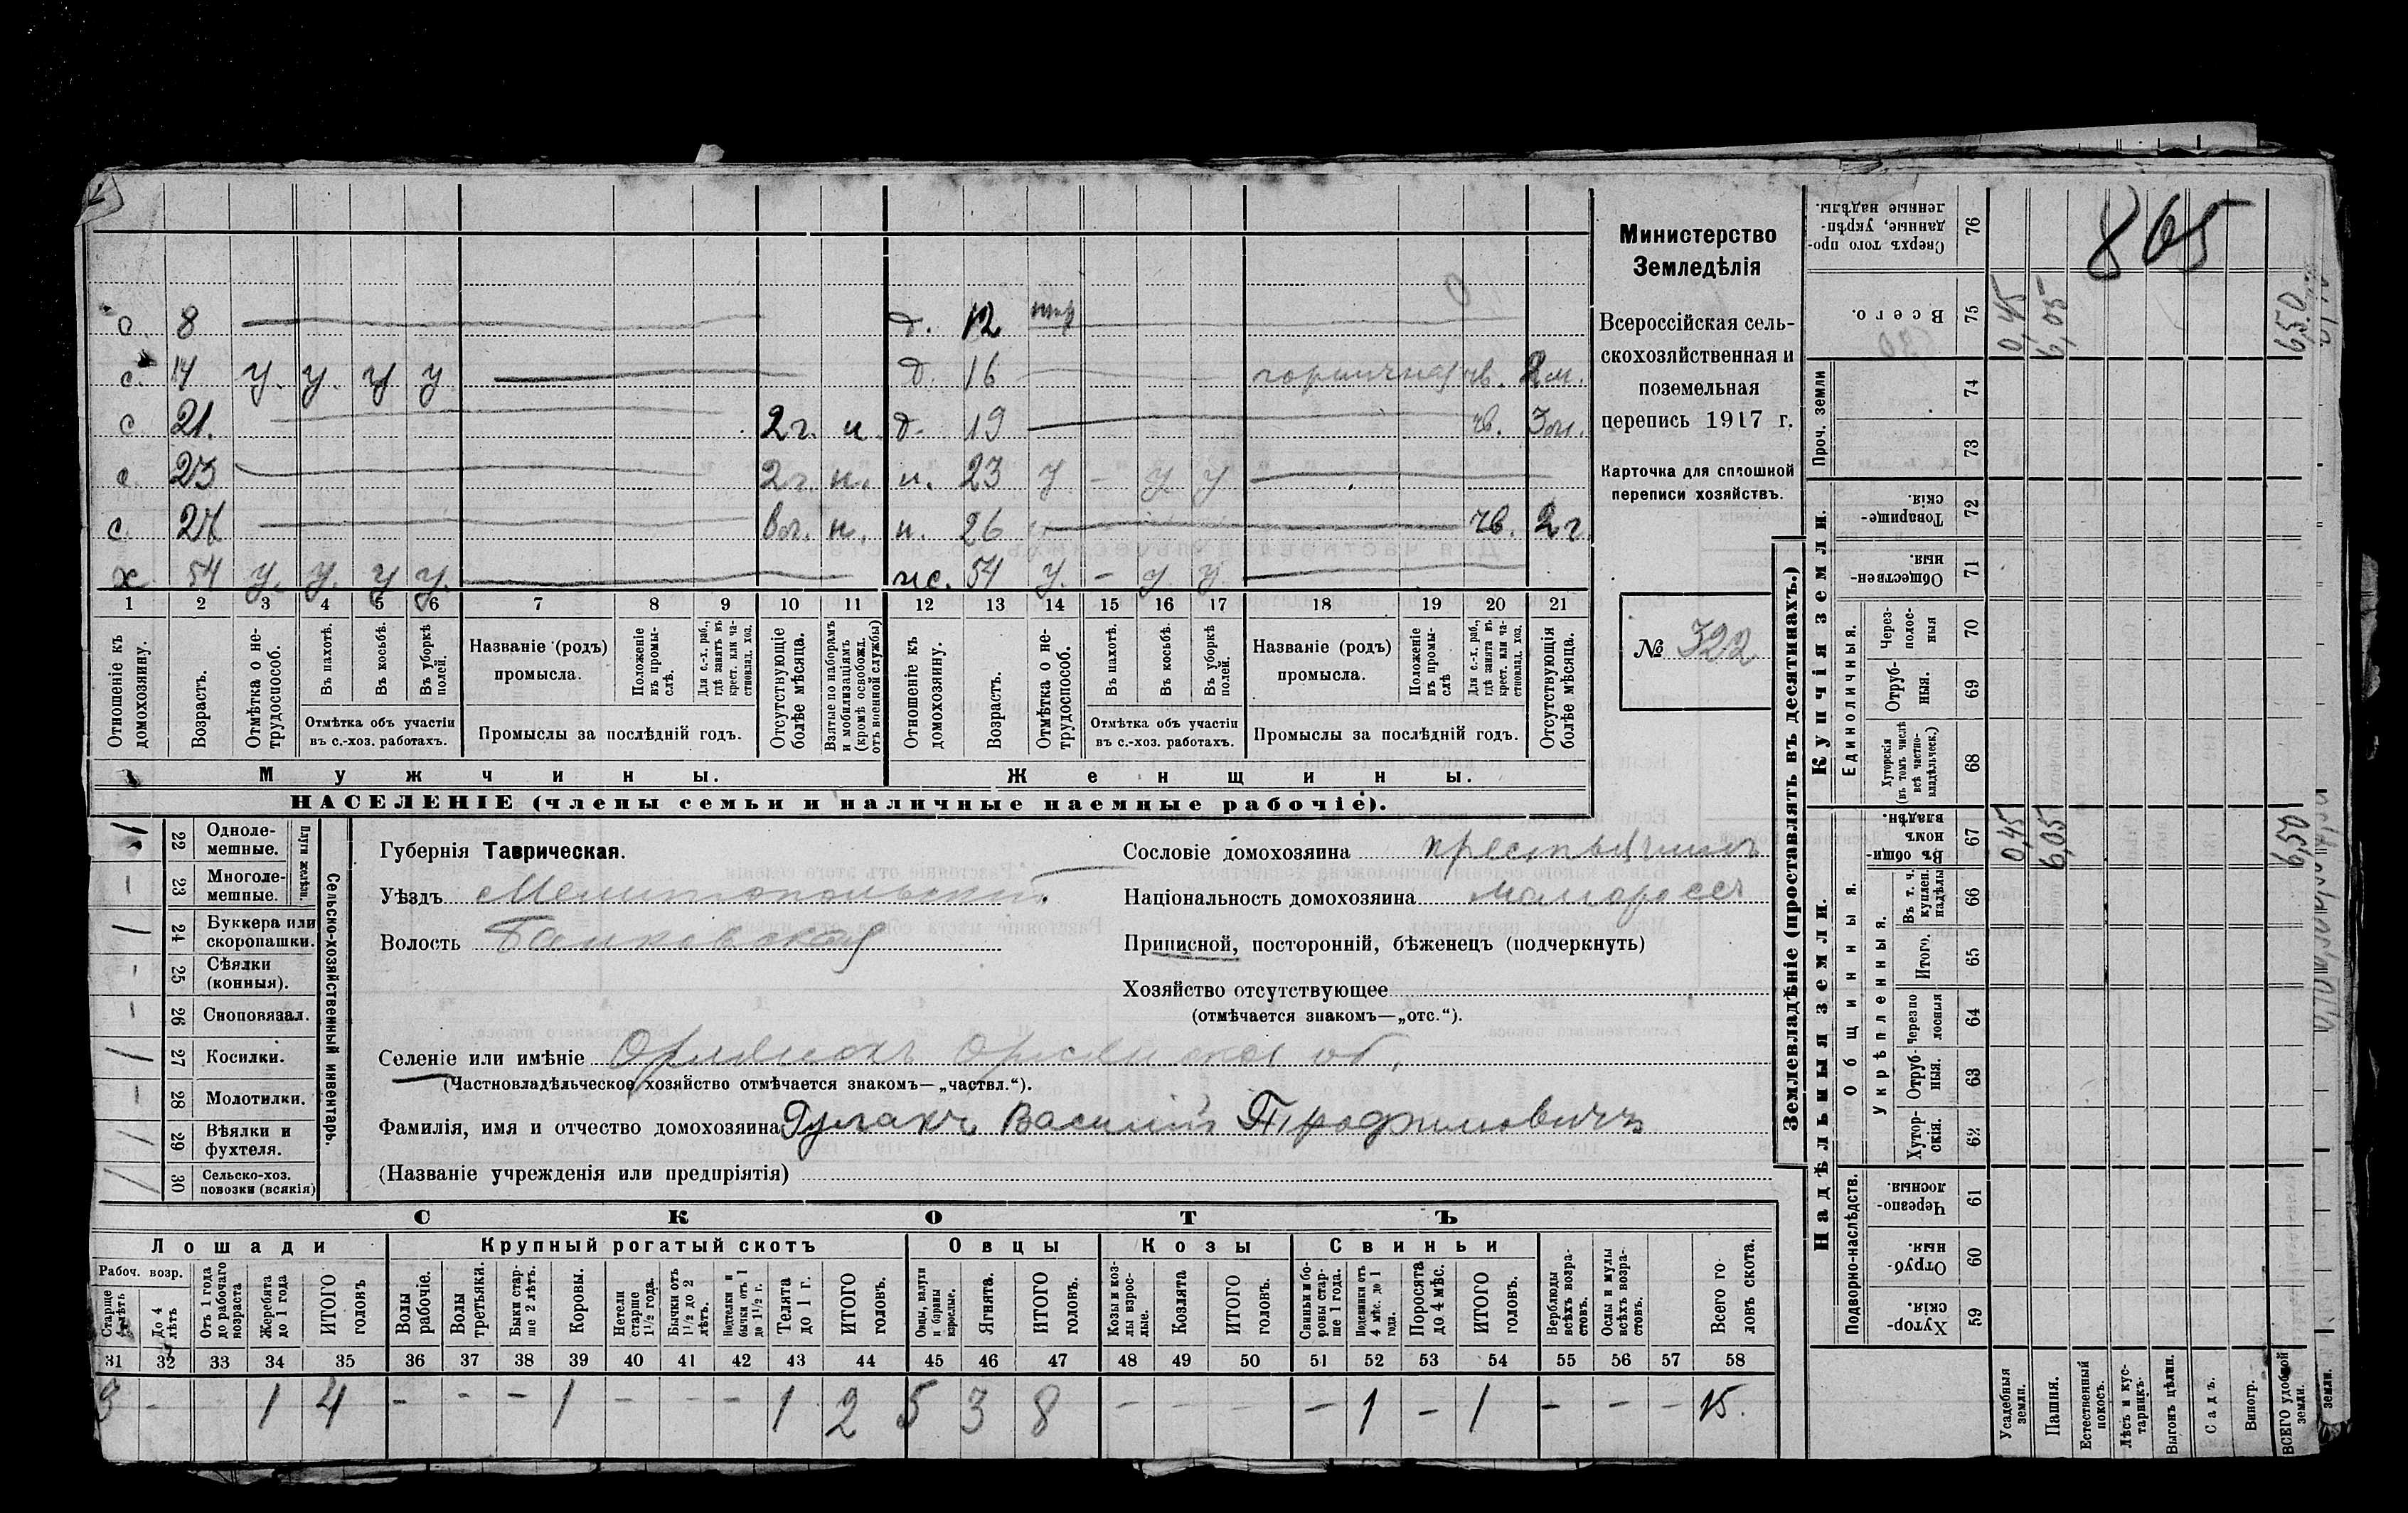 865
Министерство
Земледѣлія
Всероссійская сель-
скохозяйственная и
поземельная
перепись 1917 г.
Карточка для сплошной
переписи хозяйствъ.
№ 322
с 8 д. 12
с. 14 у. у. у у д. 16 горничная чв. 2 м.
с 21. 2 г. н. д. 19 чв. 3 м.
с. 23 2 г. н. н. 23 у – у у
с. 27 н. н. 26 чв. 2 г.
х 54 у. у. у у. жс. 54 у. – у. у
1 2 3 4 5 6 7 8 9 10 11 12 13 14 15 16 17 18 19 20 21
Отношеніе къ домохозяину.
Возрастъ.
Отмѣтка о не-трудоспособ.
Въ пахотѣ.
Въ косьбѣ.
Въ уборкѣ полей.
Отмѣтка объ участіи
въ с.-хоз. работахъ.
Названіе (родъ)
промысла.
Положеніе въ промы-слѣ.
Для с.-х. раб., гдѣ занятъ въ крест. или ча-стновлад. хоз.
Промыслы за послѣдній годъ.
Отсутствующіе болѣе мѣсяца.
Взятые по наборамъ и мобилизаціямъ (кромѣ освобожд. отъ военной службы)
Отношеніе къ домохозяину.
Возрастъ.
Отмѣтка о не-трудоспособ.
Въ пахотѣ.
Въ косьбѣ.
Въ уборкѣ полей.
Отмѣтка объ участіи
въ с.-хоз. работахъ.
Названіе (родъ)
промысла.
Положеніе въ промы-слѣ
Для с.-х. раб., гдѣ занята въ крест. или ча-стновлад. хоз.
Промыслы за послѣдній годъ.
Отсутствующія болѣе мѣсяца.
Мужчины. Женщины.
НАСЕЛЕНІЕ (члены семьи и наличные наемные рабочіе).
Сельско-хозяйственный инвентарь.
Плуги желѣзн.
1 22 Одноле-мешные.
– 23 Многоле-мешные.
/ 24 Буккера или скоропашки.
- 25 Сѣялки (конныя).
- 26 Сноповязал.
/ 27 Косилки.
- 28 Молотилки.
/ 29 Вѣялки и фухтеля.
/ 30 Сельско-хоз. повозки (всякія)
Губернія Таврическая.
Уѣздъ Мелитопольский.
Волость Банковская
Сословіе домохозяина крестьянинъ
Національность домохозяина малороссъ
Приписной, посторонній, бѣженецъ (подчеркнуть)
Хозяйство отсутствующее
(отмѣчается знакомъ—„отс.“).
Селеніе или имѣніе
(Частновладѣльческое хозяйство отмѣчается знакомъ—„частвл.“).
Фамилія, имя и отчество домохозяина Гулакъ Василій Трофимовичъ
(Названіе учрежденія или предпріятія)
СКОТЪ
Лошади Крупный рогатый скотъ Овцы Козы Свиньи
Рабоч. возр.
Старше 4 лѣтъ
До 4 лѣтъ
Отъ 1 года до рабочаго возраста
Жеребята до 1 года
ИТОГО головъ
Волы рабочіе.
Волы третьяки.
Быки стар-ше 2 лѣтъ.
Коровы.
Нетели старше 1½ года.
Бычки отъ 1½ до 2 лѣтъ.
Подтелки и бычки отъ 1 до 1½ г.
Телята до 1 г.
ИТОГО головъ.
Овцы, валухи и бараны взрослые.
Ягнята.
ИТОГО головъ.
Козы и коз-лы взрос-лые.
Козлята
ИТОГО головъ.
Свиньи и бо-ровы стар-ше 1 года.
Подсвинки отъ 4 мѣс. до 1 года.
Поросята до 4 мѣс.
ИТОГО головъ.
Верблюды всѣхъ возра-стовъ.
Ослы и мулы всѣхъ возра-стовъ.
Всего го-ловъ скота.
31 32 33 34 35 36 37 38 39 40 41 42 43 44 45 46 47 48 49 50 51 52 53 54 55 56 57 58
3 - - 1 4 - - - 1 - - - 1 2 5 3 8 - - - - 1 - 1 - - - 15.
Землевладѣніе (проставлять въ десятинахъ.)
Купчія земли.
Надѣльныя земли.
Сверхъ того про-данные, укрѣп-ленные надѣлы. 76
Всего. 75 0,45 6,05 6,50
Проч. земли 74
73
Товарище-скія. 72
Обществен-ныя. 71
Единоличныя.
Через-полос-ныя 70
Отруб-ныя. 69
Хуторскія (въ томъ числѣ всѣ частно-владѣльческ.) 68
Общинныя.
Въ общин-номъ владѣн. 67 0,45 6,05 6,50
Укрѣпленныя.
Въ т. ч. куплен. надѣлы 66
Итого. 65
Черезпо лосныя 64
Отруб-ныя. 63
Хутор-скія. 62
Подворно-наслѣдств.
Черезпо-лосныя. 61
Отруб-ныя. 60
Хутор-скія. 59
Усадебныя земли.
Пашня.
Естественный покосъ.
Лѣсъ и кус-тарникъ.
Выгонъ цѣлин.
Садъ.
Виногр.
ВСЕГО удобной земли.
земли.